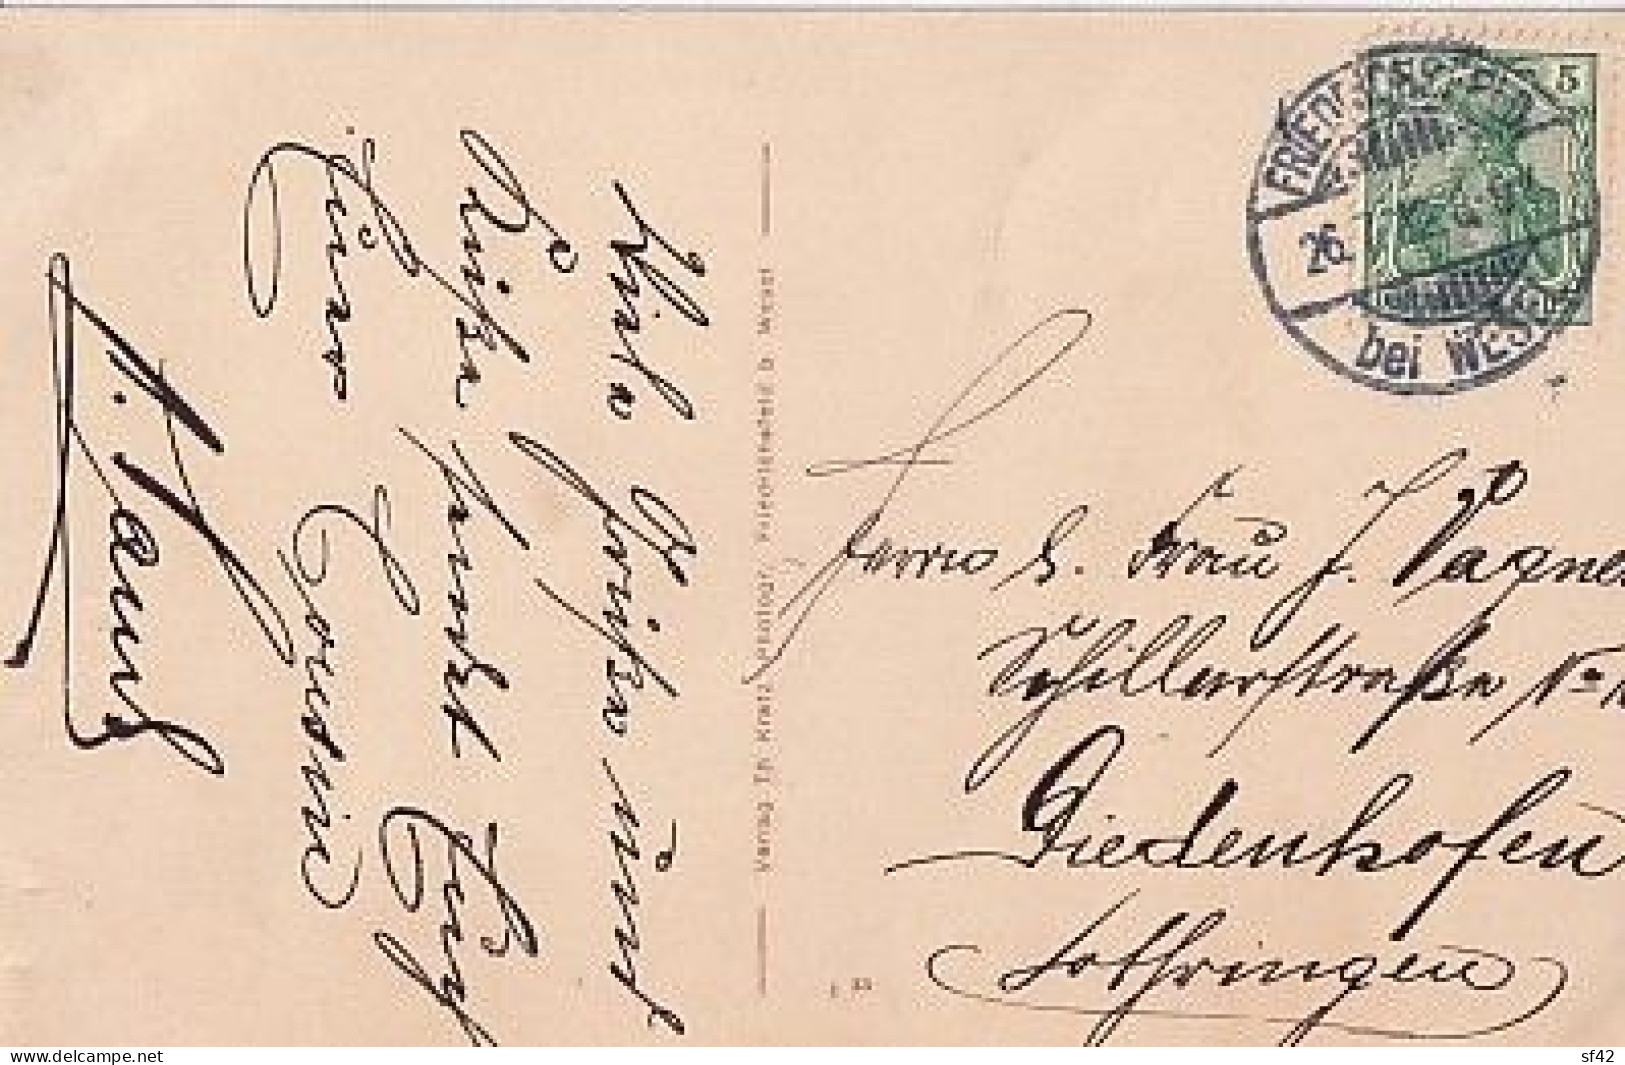 Viele Grüße und
Küße sendet Euch
Eure Cousine
H. Hans
Verlag Th. Kratz Photogr. Friedrichsfeld b. Wesel
FRIEDRICHSFELD
26.
bei WESEL
5
Familie J. Wagner
Schillerstraße No
Diedenhofen
Lothringen
www.delcampe.net
sf42